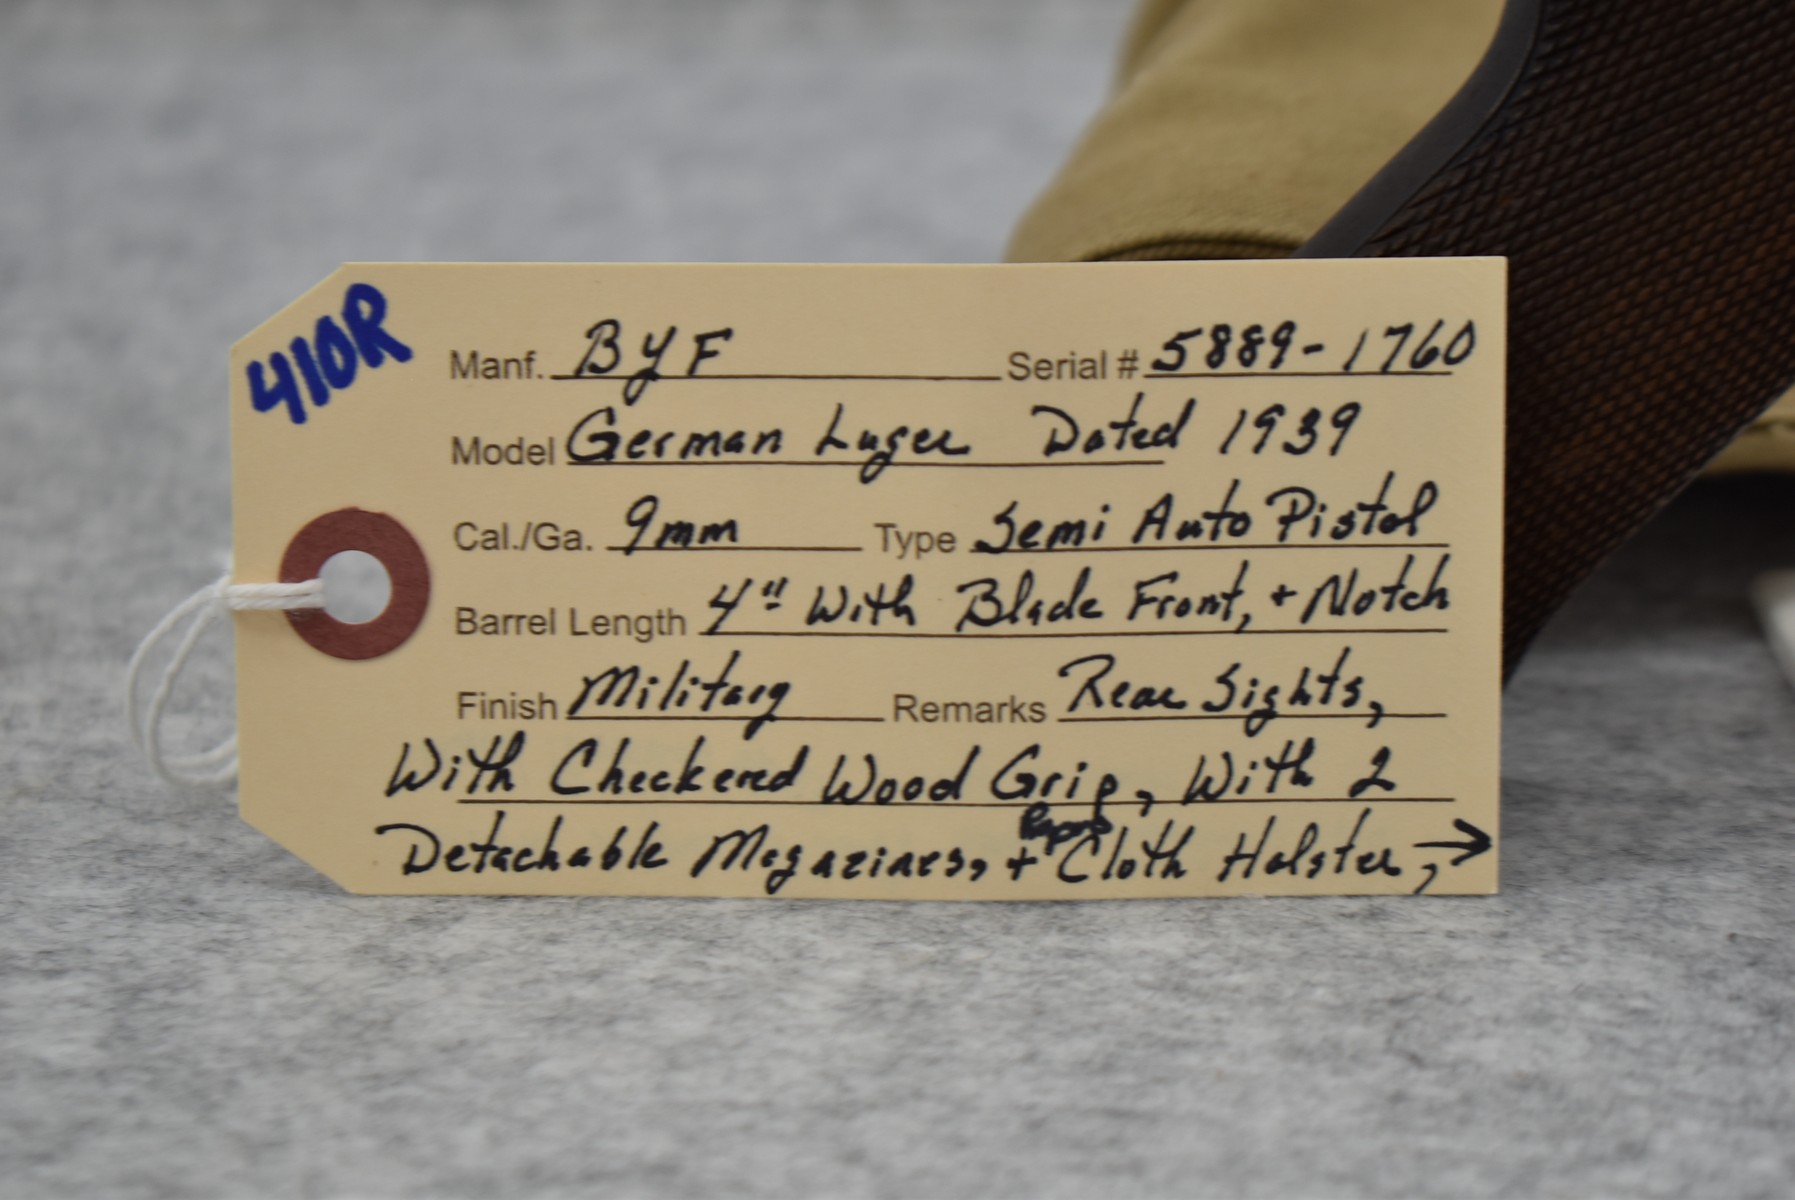 410R
Manf. BYF Serial # 5889-1760
Model German Luger Dated 1939
Cal./Ga. 9mm Type Semi Auto Pistol
Barrel Length 4" With Blade Front, + Notch
Finish Military Remarks Rear Sights,
With Checkered Wood Grip, With 2
Repro
Detachable Magazines, + Cloth Holster, →